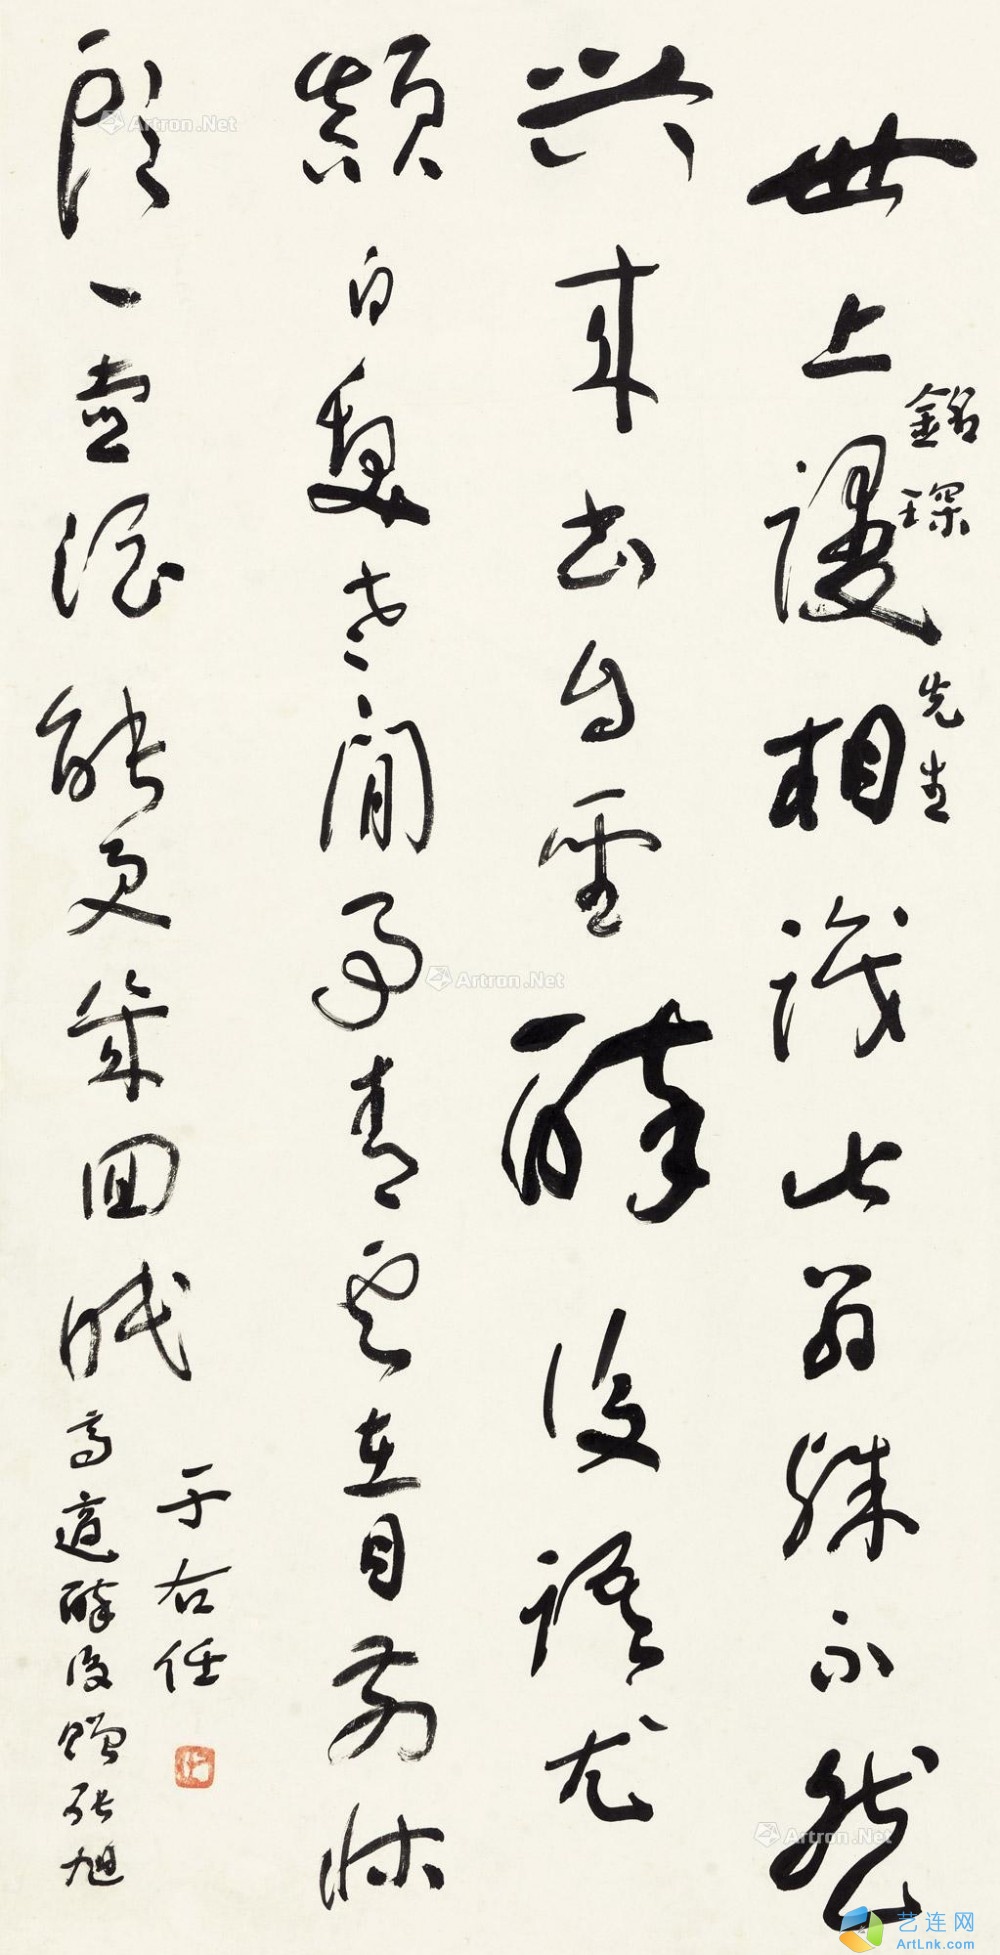 世上谩相識此翁殊不然
興來書自聖醉後語尤
顛白髮老閒事青雲在目前床
頭一壺酒能更幾回眠
高適醉後贈張旭
于右任
銘琛先生
Artron.Net
Artron.Net
Artron.Net
艺连网
ArtLnk.com